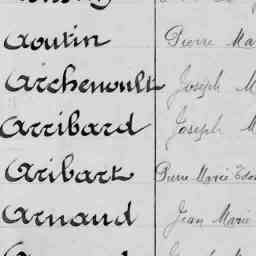 Aoutin Pierre Ma
Archenoult Joseph M
Arribard Joseph M
Aribart Pierre Marie Edou
Arnaud Jean Marie